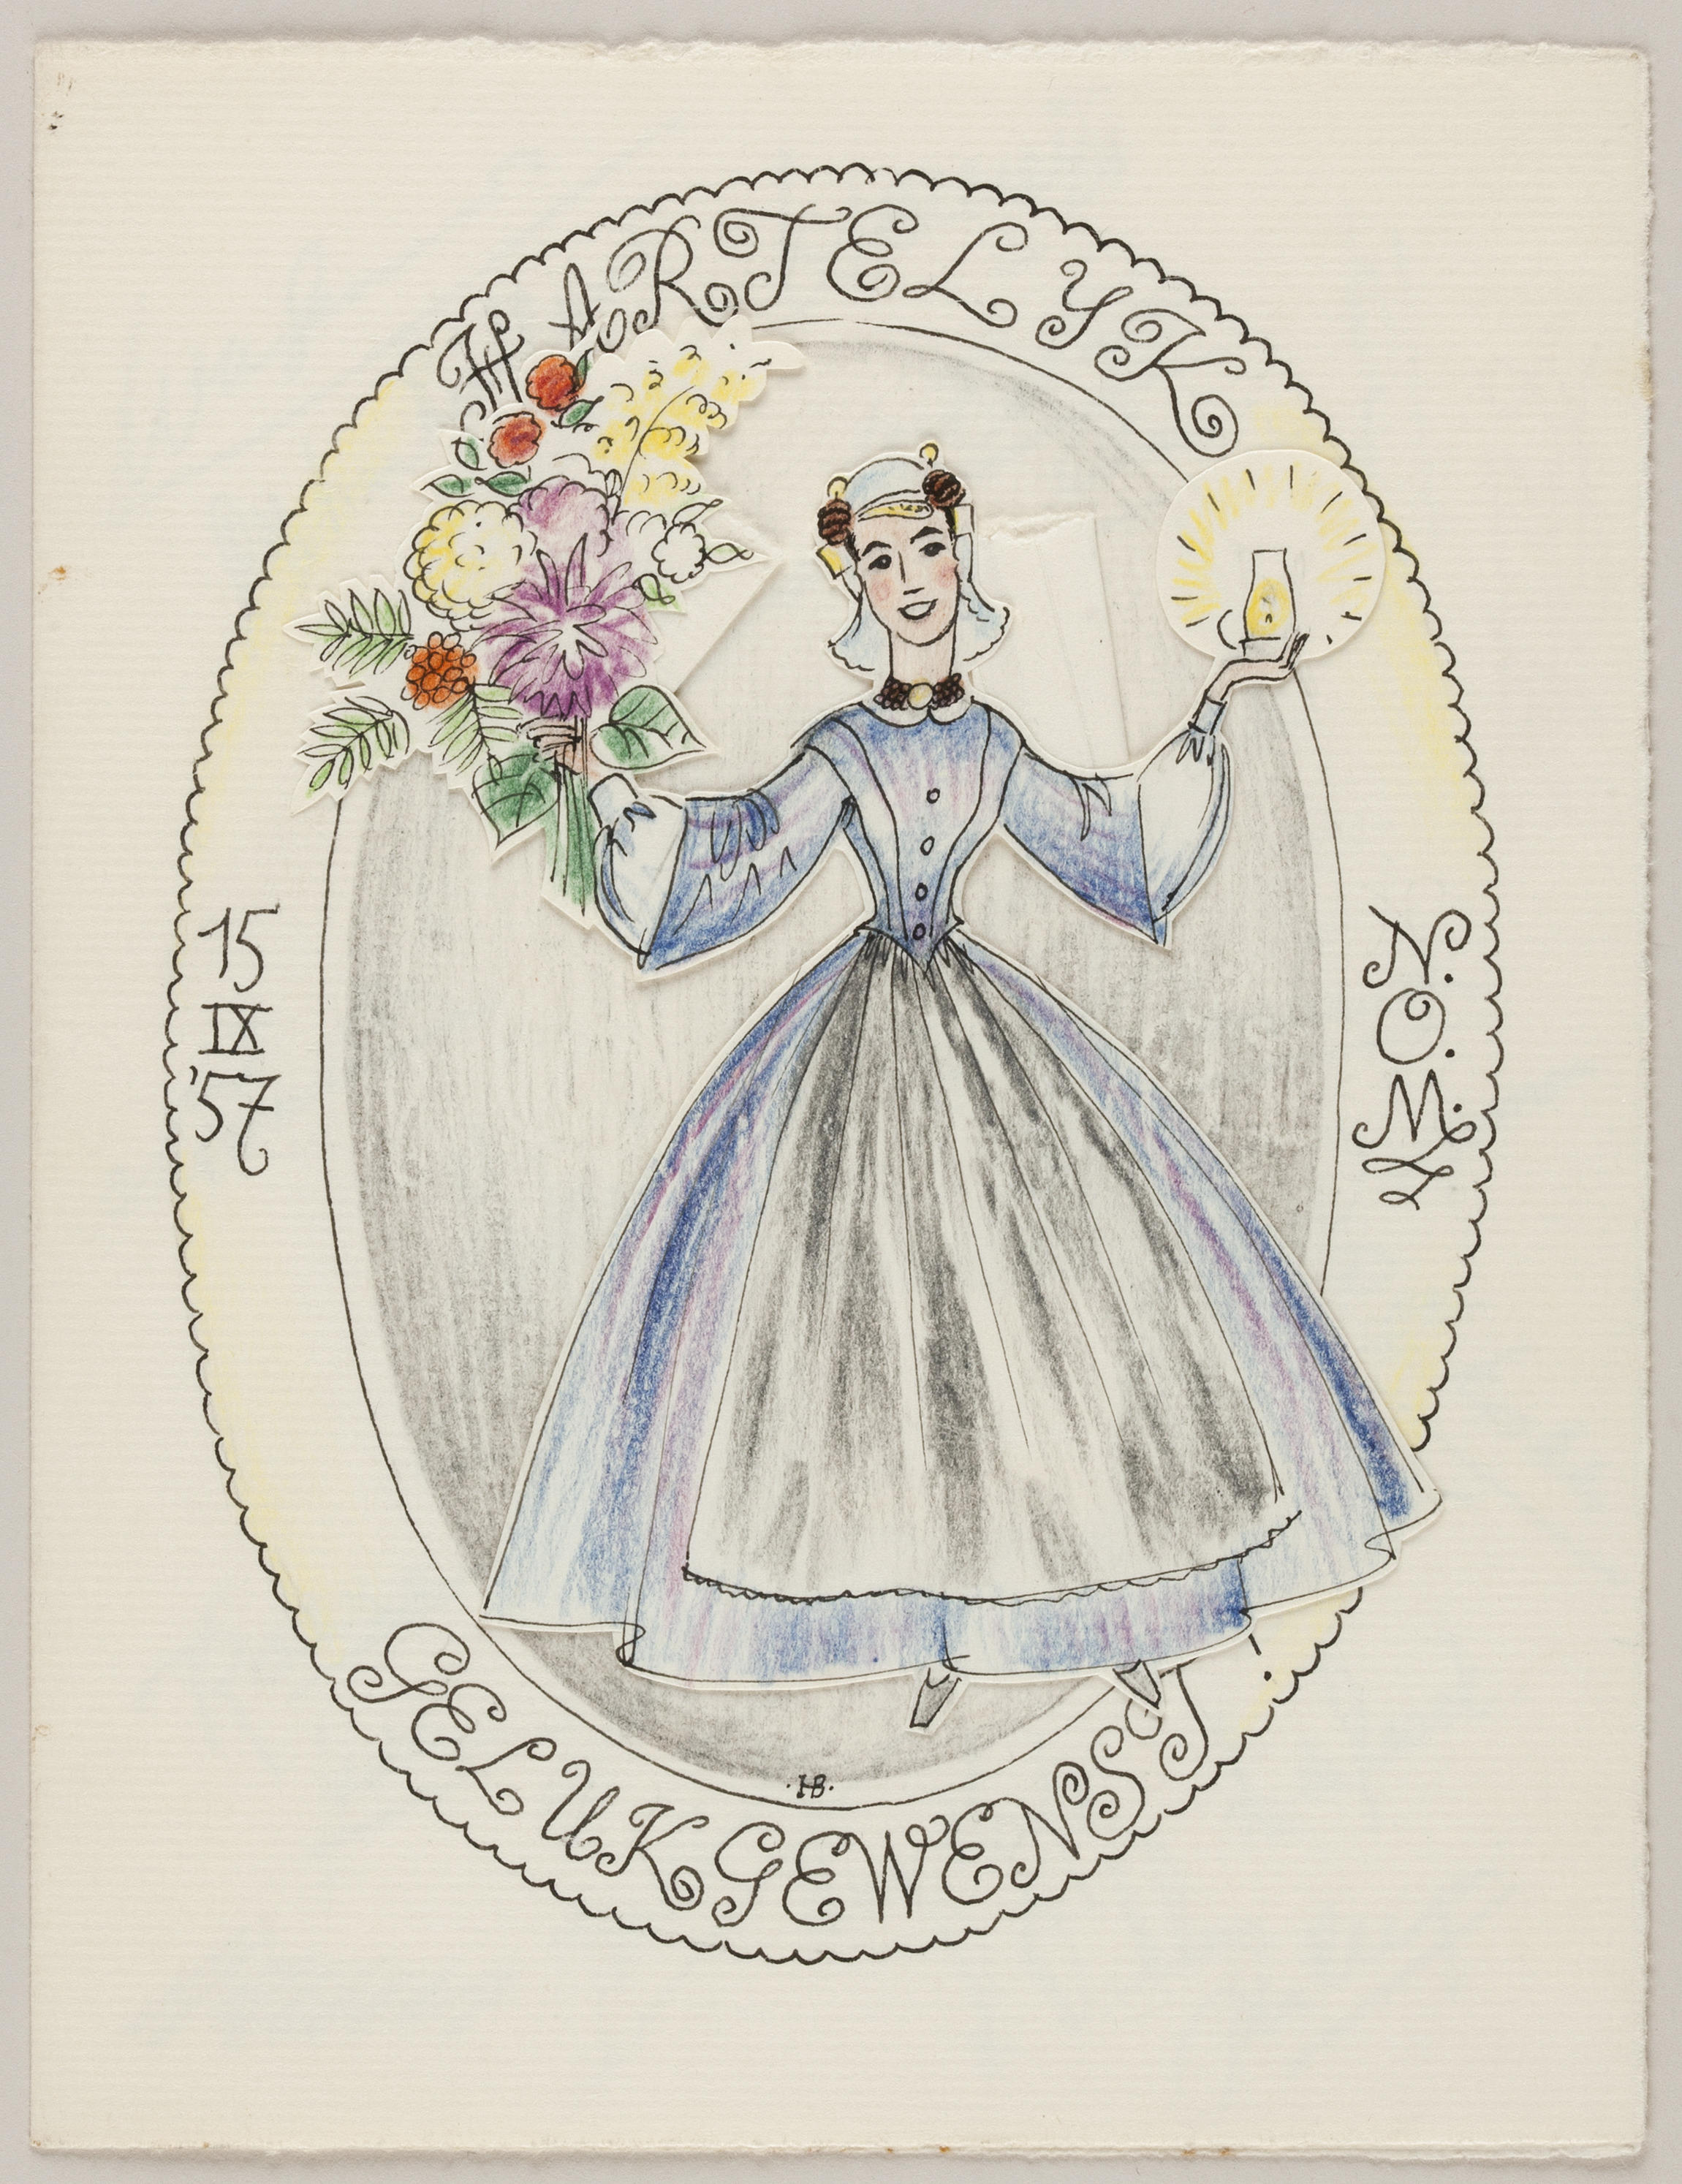 HARTELYK
15
IX
'57
·HB·
GELUKGEWENST!